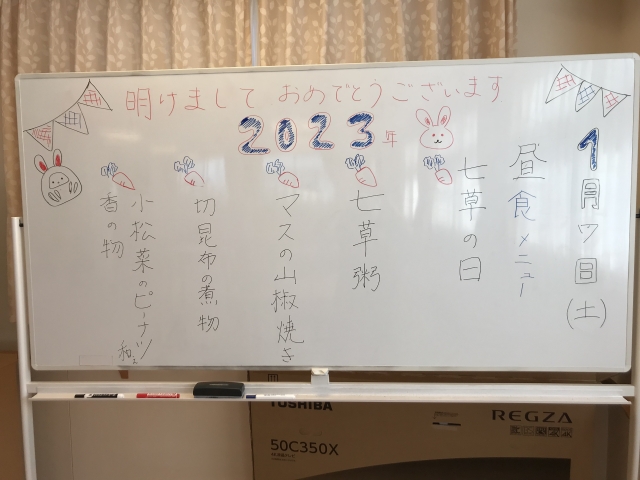 明けまして おめでとうございます
2023年
1月7日(土)
昼食メニュー
七草の日
七草粥
マスの山椒焼き
切昆布の煮物
小松菜のピーナツ和え
香の物
TOSHIBA
REGZA
50C350X